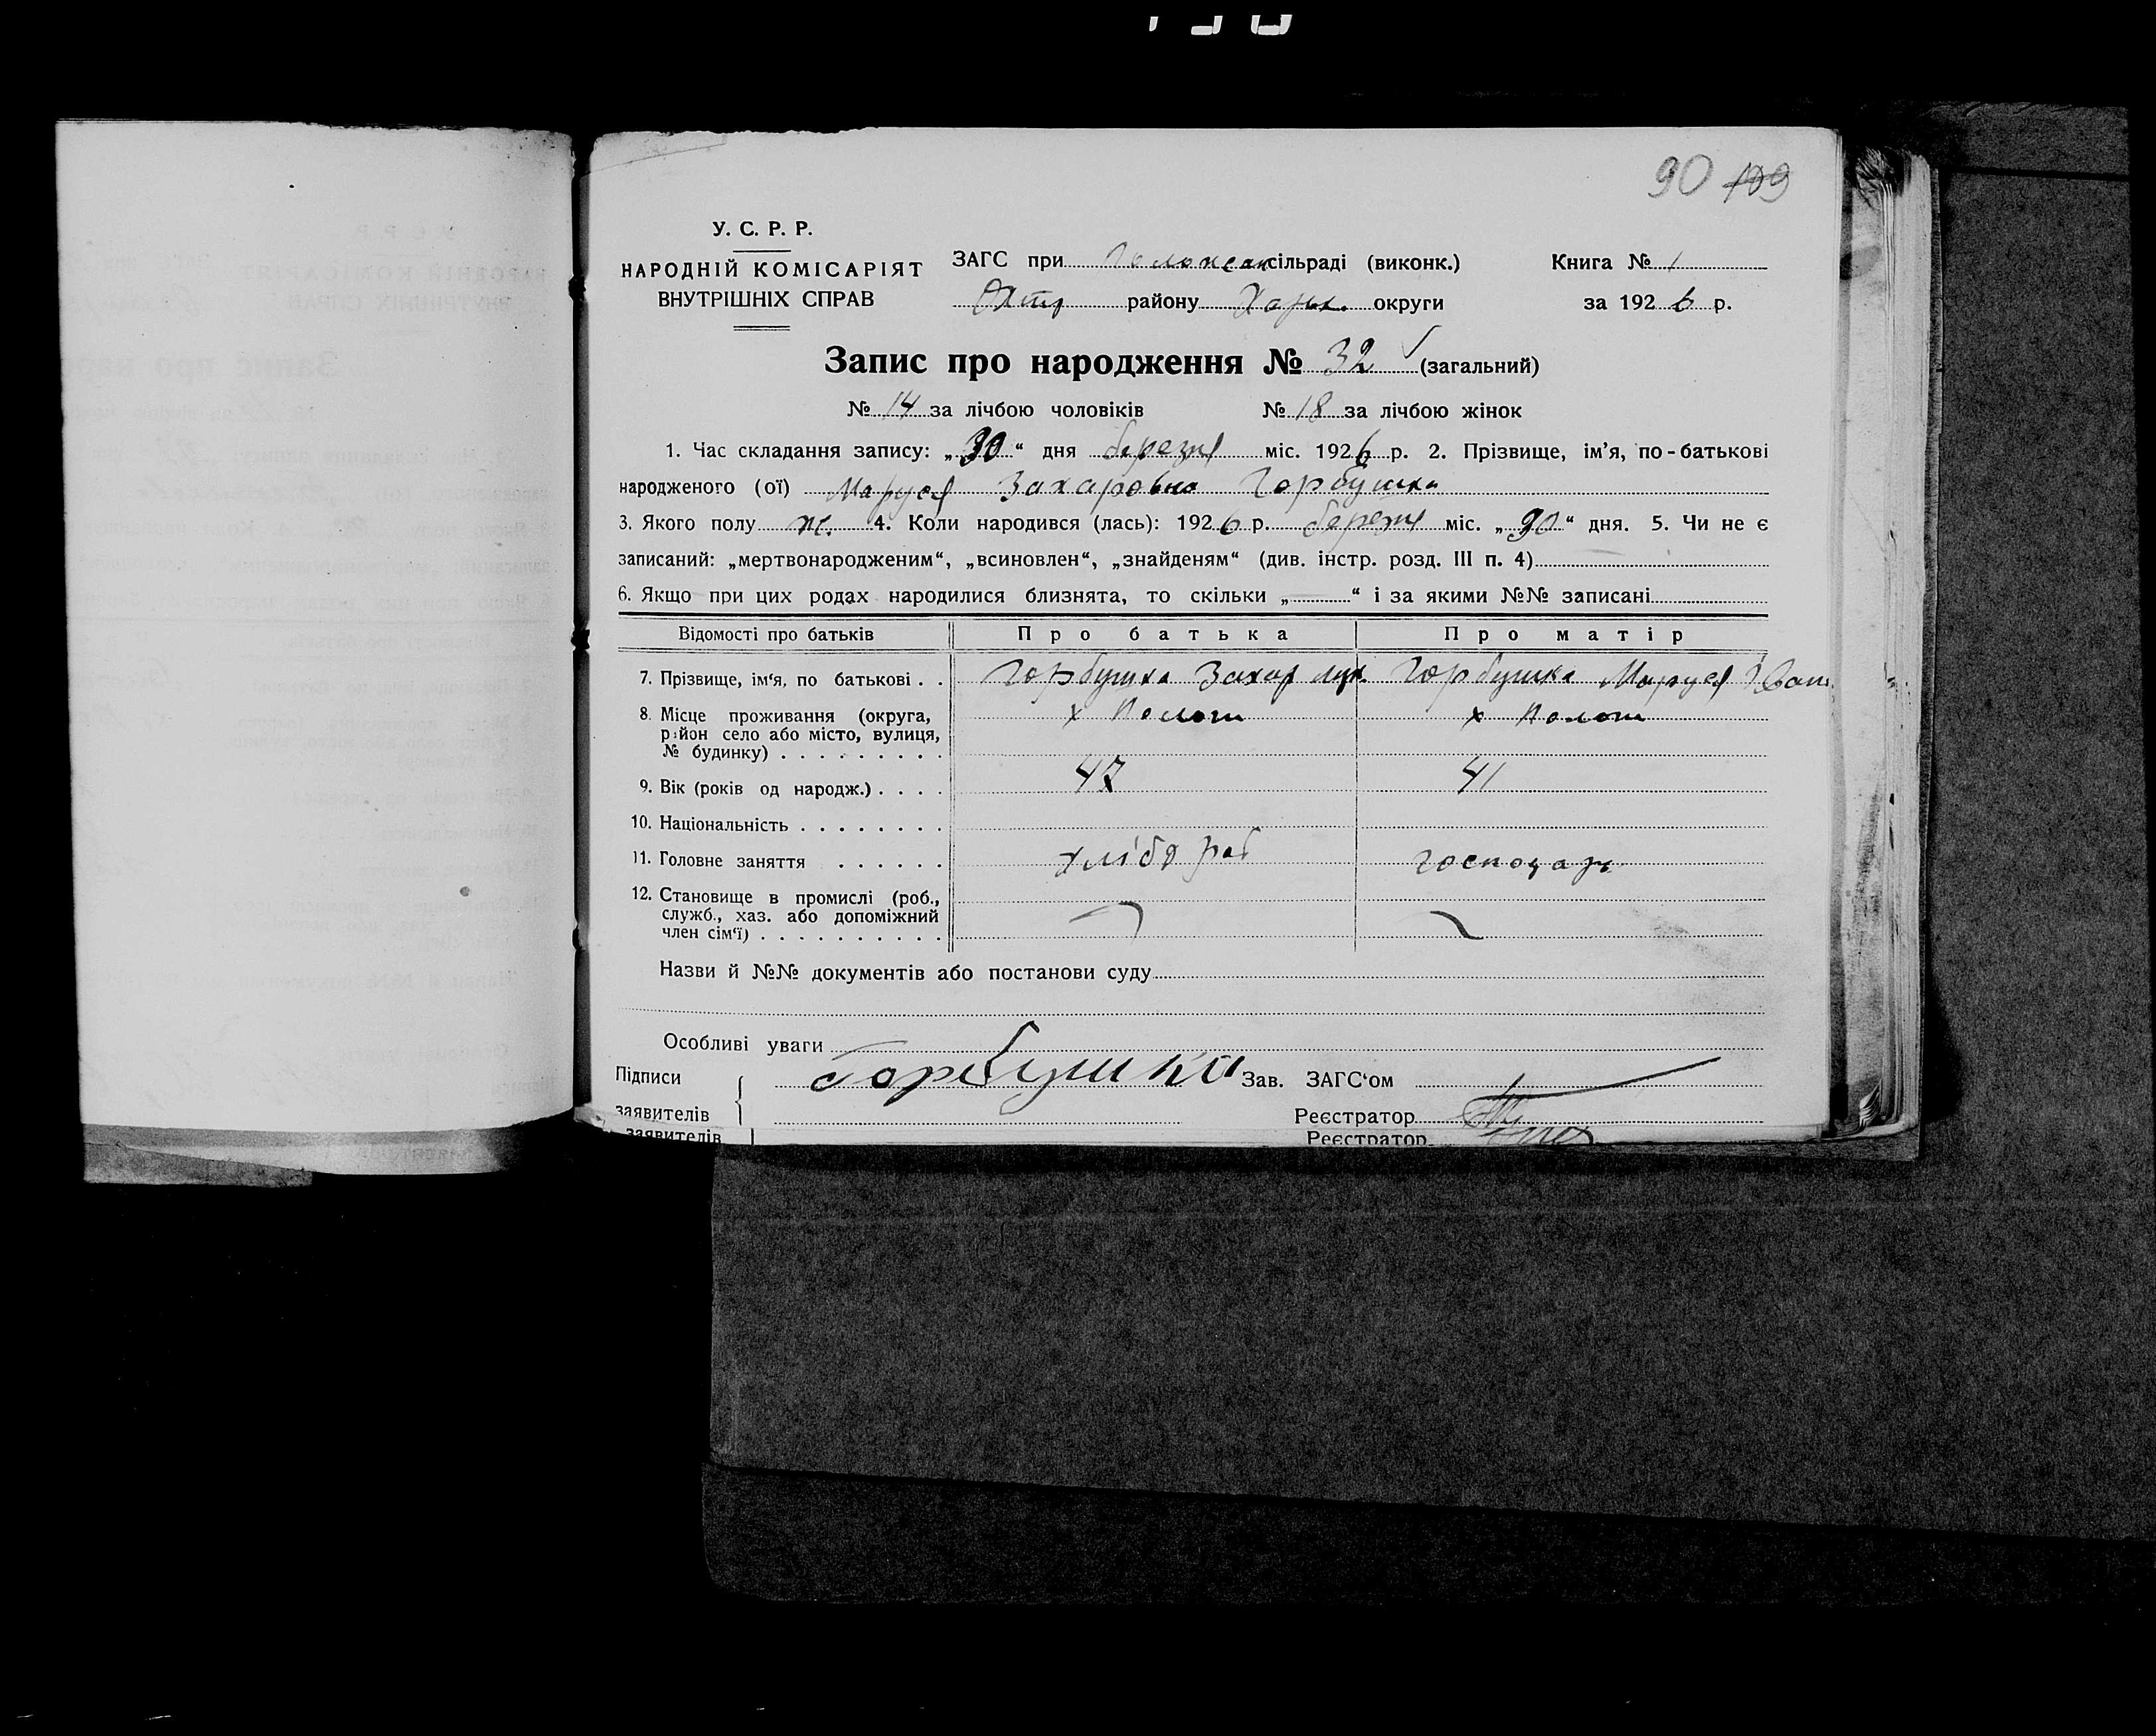 90 109
У. С. Р. Р.
НАРОДНІЙ КОМІСАРІЯТ
ВНУТРІШНІХ СПРАВ
ЗАГС при сільраді (виконк.)
Охтр району Харьк. округи
Книга № 1
за 1926 р.
Запис про народження № 32 (загальний)
№ 14 за лічбою чоловіків № 18 за лічбою жінок
1. Час складання запису: „30“ дня березня міс. 1926 р. 2. Прізвище, ім'я, по-батькові
народженого (ої) Маруся Захаровна Горбушка
3. Якого полу ж. 4. Коли народився (лась): 1926 р. березня міс. „30“ дня. 5. Чи не є
записаний: „мертвонародженим“, „всиновлен“, „знайденям“ (див. інстр. розд. III п. 4)
6. Якщо при цих родах народилися близнята, то скільки „ “ і за якими №№ записані
Відомості про батьків Про батька Про матір
7. Прізвище, ім'я, по батькові . . Горбушка Захар Горбушка Маруся Іван
8. Місце проживання (округа, х х
район село або місто, вулиця,
№ будинку) . . . . . . . . .
9. Вік (років од народж.) . . . . 47 41
10. Національність . . . . . . . .
11. Головне заняття . . . . . . хлібороб господар
12. Становище в промислі (роб.,
служб., хаз. або допоміжний
член сім'ї) . . . . . . . . . .
Назви й №№ документів або постанови суду
Особливі уваги
Підписи Горбушка Зав. ЗАГС'ом
заявителів Реєстратор
заявителів Реєстратор